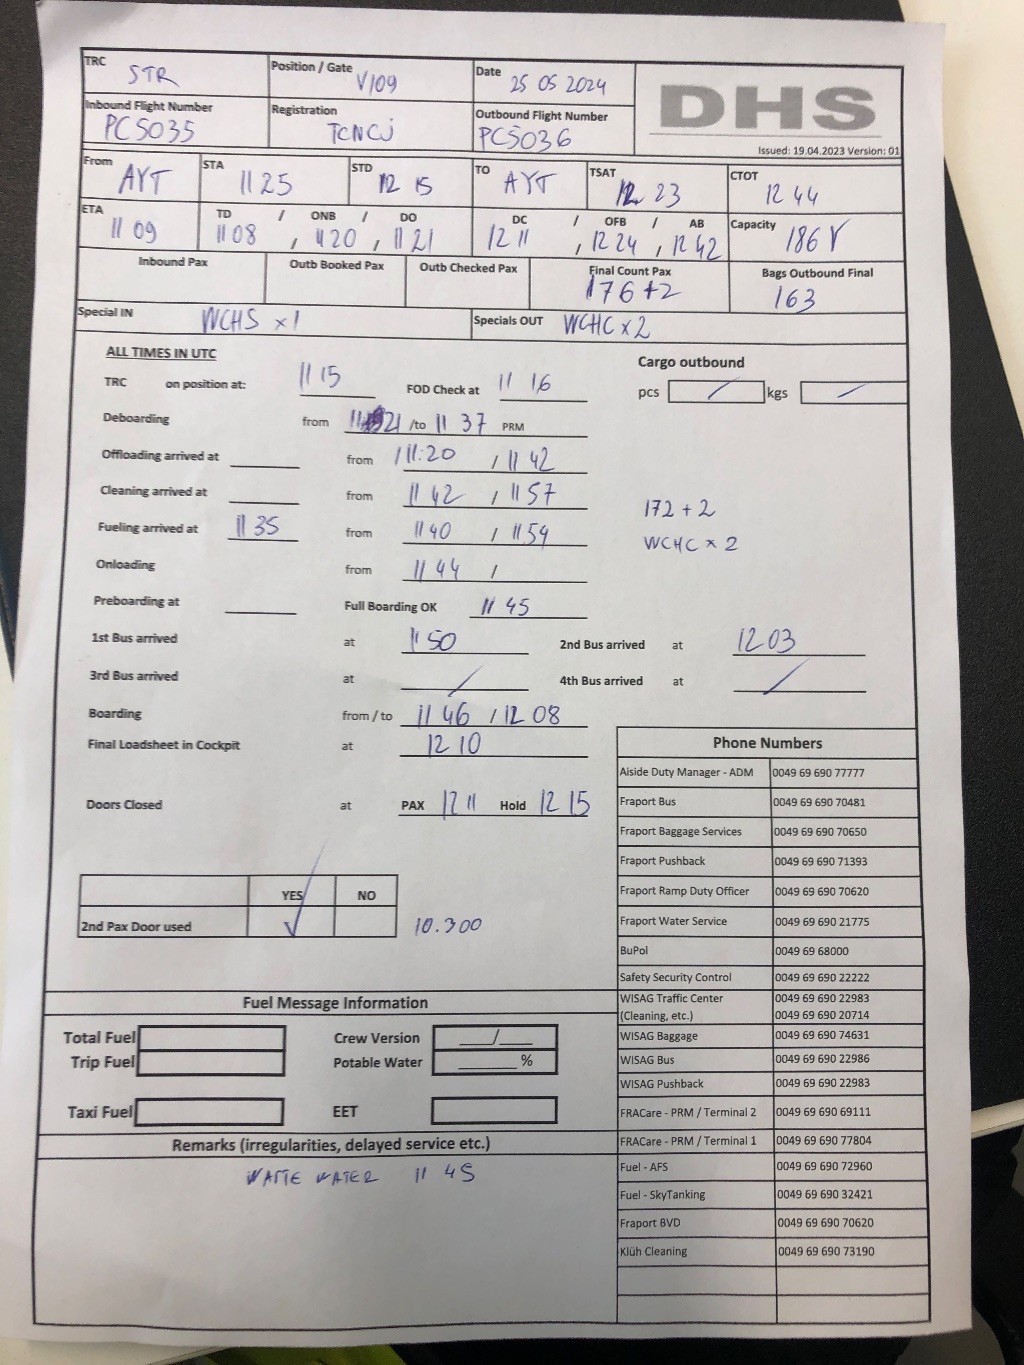 TRC STR Position / Gate V109 Date 25 05 2024
DHS
Inbound Flight Number PC5035 Registration TCNCJ Outbound Flight Number PC5036
Issued: 19.04.2023 Version: 01
From AYT STA 11 25 STD 12 15 TO AYT TSAT 12 23 CTOT 12 44
ETA 11 09 TD / ONB / DO 11 08 , 11 20 , 11 21 DC / OFB / AB 12 11 , 12 24 , 12 42 Capacity 186 Y
Inbound Pax Outb Booked Pax Outb Checked Pax Final Count Pax 176+2 Bags Outbound Final 163
Special IN WCHS x1 Specials OUT WCHC x2
ALL TIMES IN UTC
Cargo outbound
TRC on position at: 11 15 FOD Check at 11 16 pcs / kgs /
Deboarding from 11 21 /to 11 37 PRM
Offloading arrived at from 11:20 / 11 42
Cleaning arrived at from 11 42 / 11 57
172 + 2
Fueling arrived at 11 35 from 11 40 / 11 54
WCHC x 2
Onloading from 11 44 /
Preboarding at Full Boarding OK 11 45
1st Bus arrived at 11 50 2nd Bus arrived at 12 03
3rd Bus arrived at / 4th Bus arrived at /
Boarding from / to 11 46 / 12 08
Final Loadsheet in Cockpit at 12 10
Doors Closed at PAX 12 11 Hold 12 15
YES NO
2nd Pax Door used √ 10.300
Phone Numbers
Aiside Duty Manager - ADM 0049 69 690 77777
Fraport Bus 0049 69 690 70481
Fraport Baggage Services 0049 69 690 70650
Fraport Pushback 0049 69 690 71393
Fraport Ramp Duty Officer 0049 69 690 70620
Fraport Water Service 0049 69 690 21775
BuPol 0049 69 68000
Safety Security Control 0049 69 690 22222
WISAG Traffic Center 0049 69 690 22983
(Cleaning, etc.) 0049 69 690 20714
WISAG Baggage 0049 69 690 74631
WISAG Bus 0049 69 690 22986
WISAG Pushback 0049 69 690 22983
FRACare - PRM / Terminal 2 0049 69 690 69111
FRACare - PRM / Terminal 1 0049 69 690 77804
Fuel - AFS 0049 69 690 72960
Fuel - SkyTanking 0049 69 690 32421
Fraport BVD 0049 69 690 70620
Klüh Cleaning 0049 69 690 73190
Fuel Message Information
Total Fuel Crew Version ___/___
Trip Fuel Potable Water ______ %
Taxi Fuel EET
Remarks (irregularities, delayed service etc.)
WASTE WATER 11 45